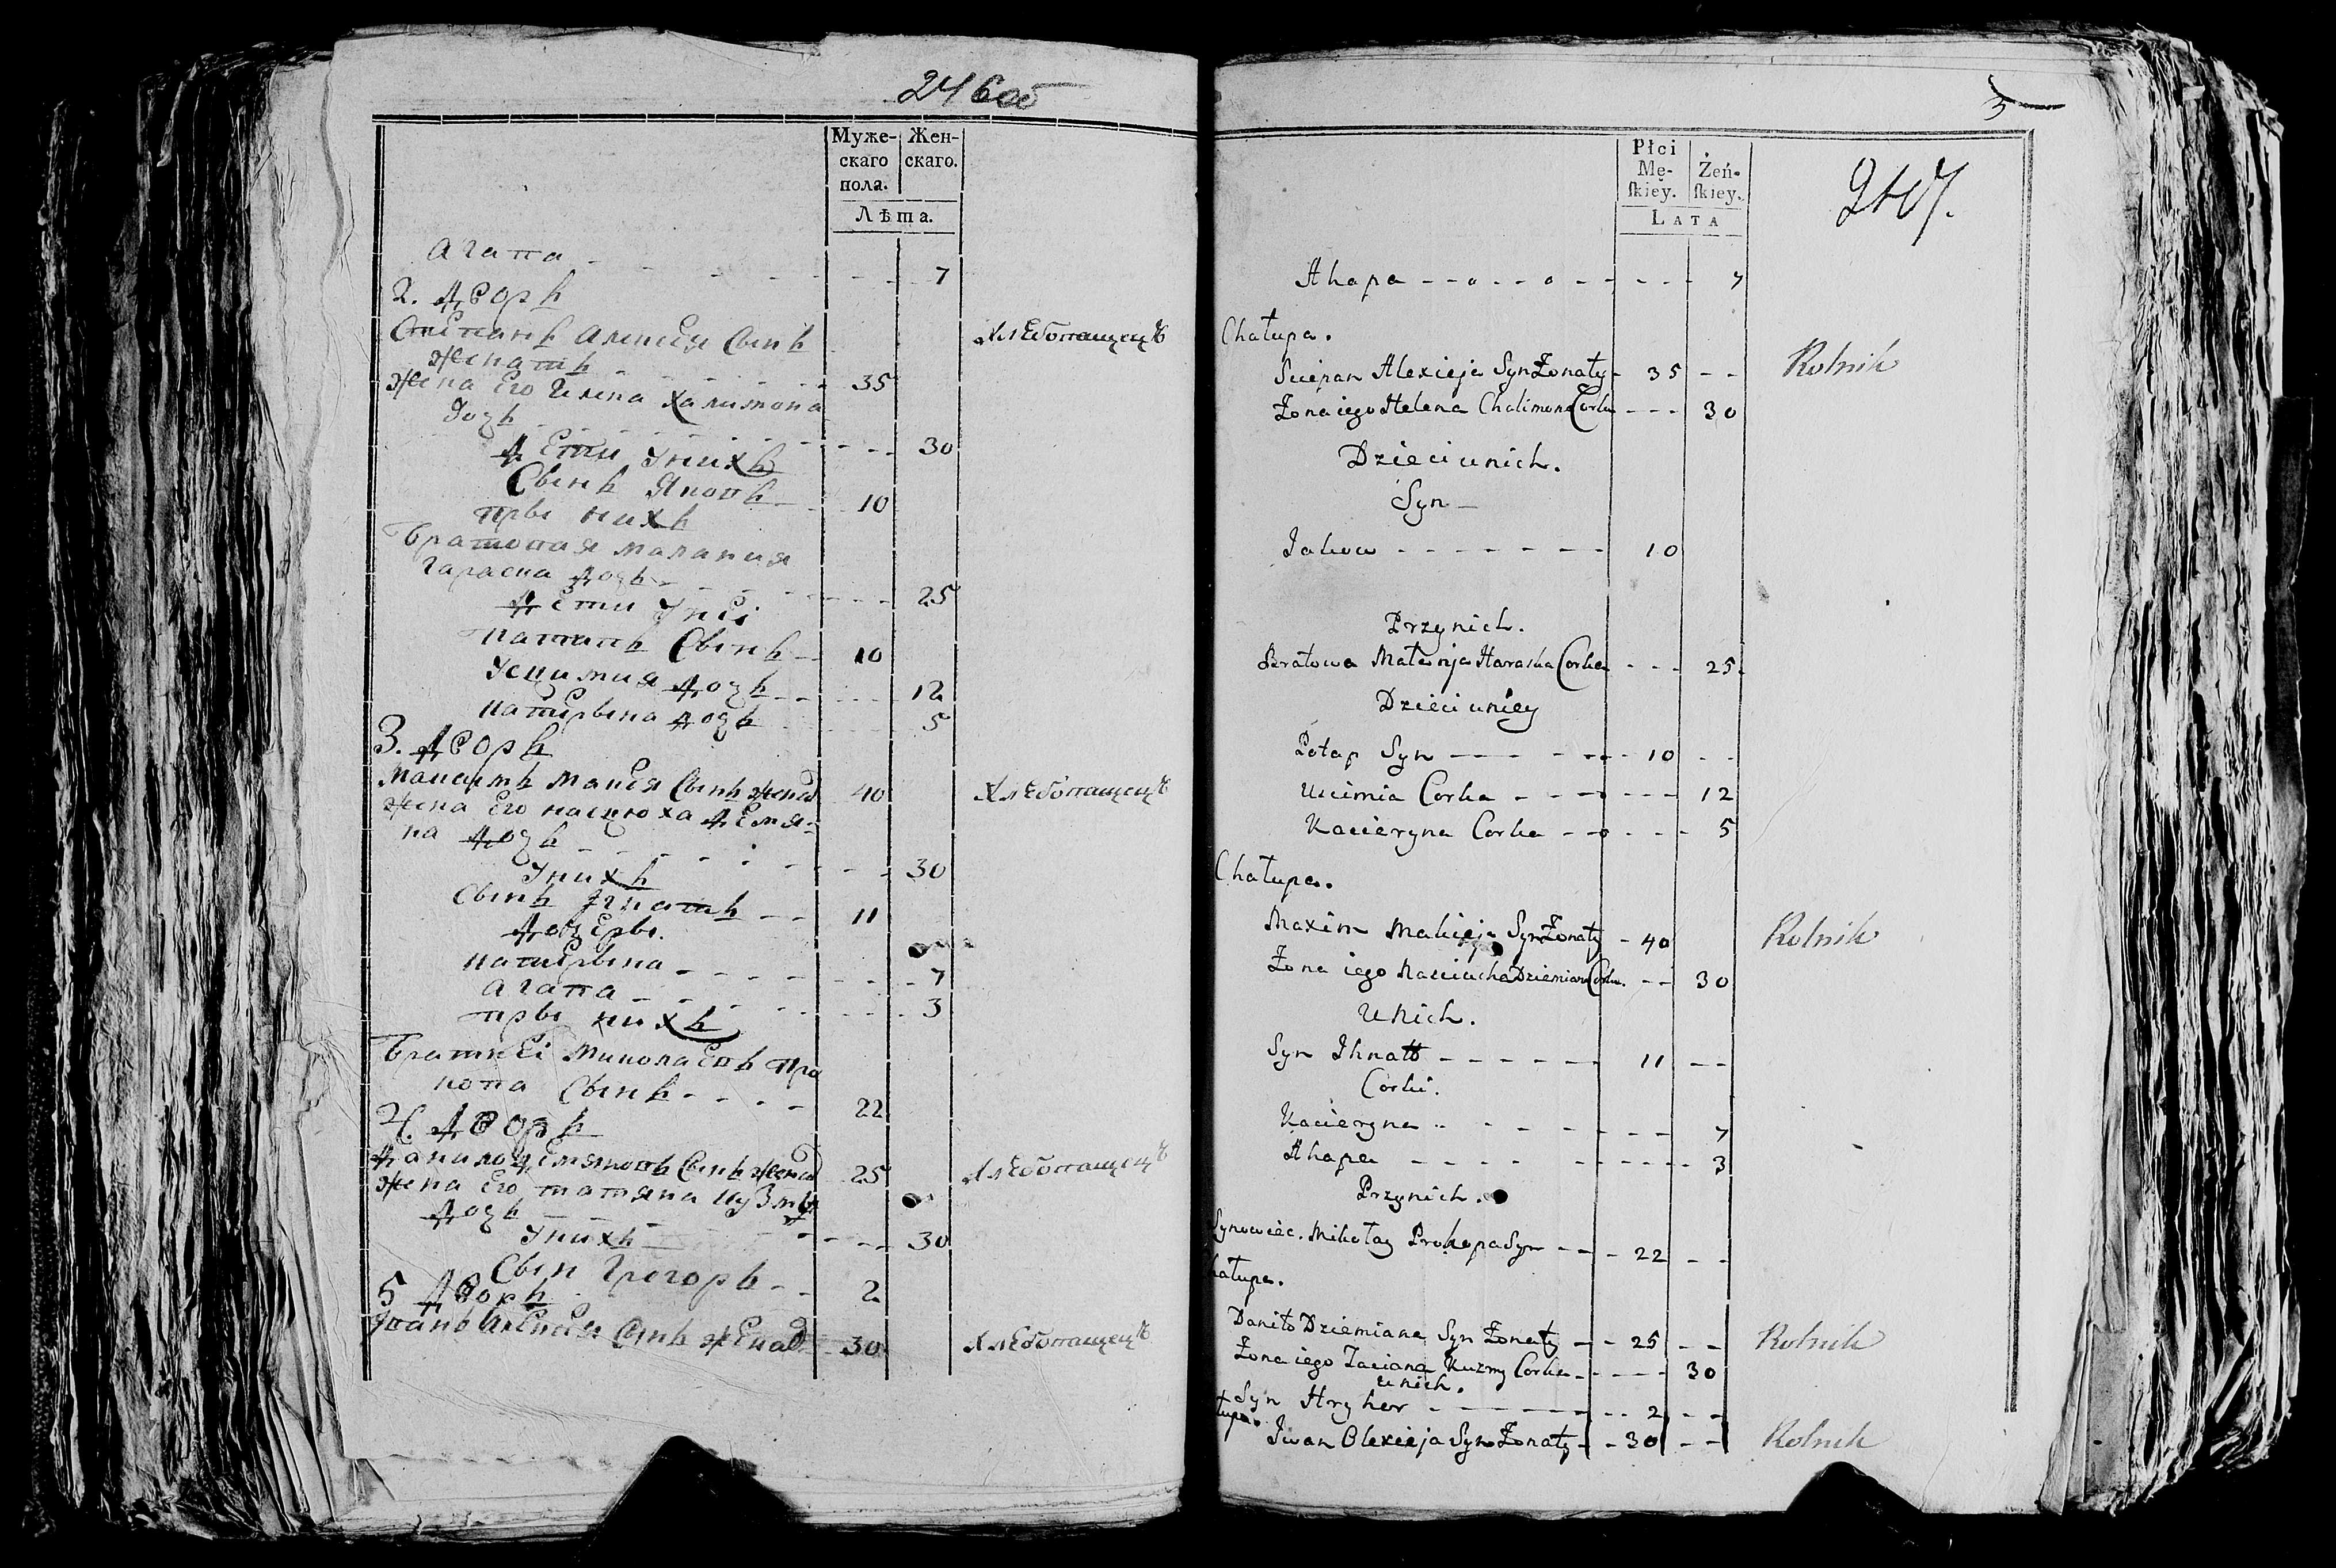 246 об
Муже-
скаго
пола.
Жен-
скаго.
Лѣта.
Агапа 7
2. Дворъ
Стипанъ Алексея Сынъ
женатъ 35
Хлебопащецъ
жена Его Гилена Халимона
дочь 30
Дети Унихъ
Сынъ Яковъ 10
при нихъ
Братовая малания
Гараска дочь 25
Дети Уней
Патапъ Сынъ 10
Усцимия дочь 12
Катирына дочь 5
3. Дворъ
Максимъ Макея Сынъ женат 40
Хлебопащецъ
жена Его насцюха Демя-
на дочь 30
Унихъ
Сынъ Игнатъ 11
Дочеры.
Катирына 7
Агапа 3
при нихъ
Братней Миколаевъ Про
копа Сынъ 22
4. Дворъ
Данило Демяновъ Сынъ женат 25
Хлебопащецъ
жена Его татяна Кузмы
дочь 30
Унихъ
Сын Григоръ 2
5 Дворъ
Иванъ Алексея Сынъ женат 30
Хлебопащецъ
5
247.
Płci
Mę-
ſkiéy.
Żeń-
ſkiey.
LATA
Ahapa 7
Chałupa.
Sciepan Alexieja Syn Żonaty 35
Rolnik
Żona iego Helena Chalimona Corka 30
Dzieci u nich.
Syn
Jakow 10
Przy nich.
Bratowa Małanja Haraska Corka 25.
Dzieci u niey
Potap Syn 10
Uscimia Corka 12
Kacieryna Corka 5
Chałupa.
Maxim Makieja Syn Żonaty 40
Rolnik
Żona iego Nasciucha Dziemiana Corka. 30
U Nich.
Syn Ihnatt 11
Corki.
Kacieryna 7
Ahapa 3
Przy nich.
Synowiec. Mikołay Prokopa Syn 22
hałupa.
Daniło Dziemiana Syn Żonaty 25
Rolnik
Żona iego Taciana Kuzmy Corka 30
u nich.
Syn Hryhor 2
łupa.
Iwan Olexieja Syn Żonaty 30
Rolnik